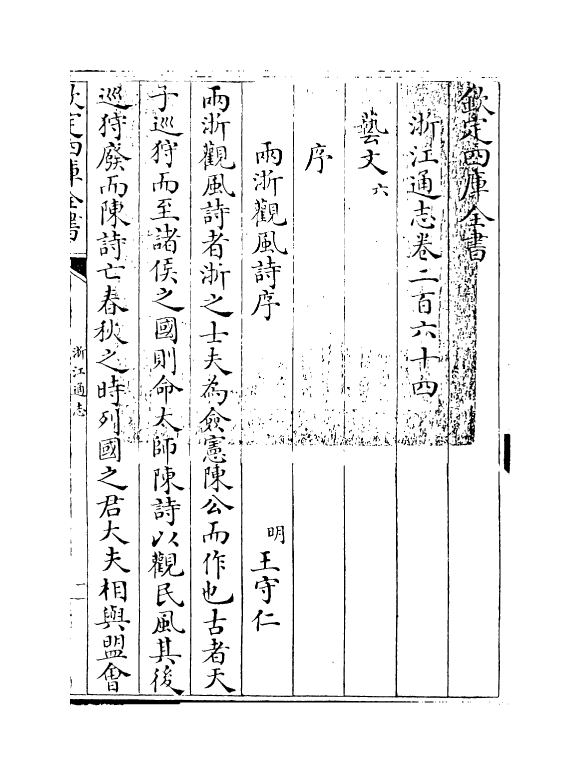 欽定四庫全書
浙江通志卷二百六十四
藝文六
序
兩浙觀風詩序 明 王守仁
兩浙觀風詩者浙之士夫為僉憲陳公而作也古者天
子巡狩而至諸侯之國則命太師陳詩以觀民風其後
巡狩廢而陳詩亡春秋之時列國之君大夫相與盟會
欽定四庫全書
浙江通志